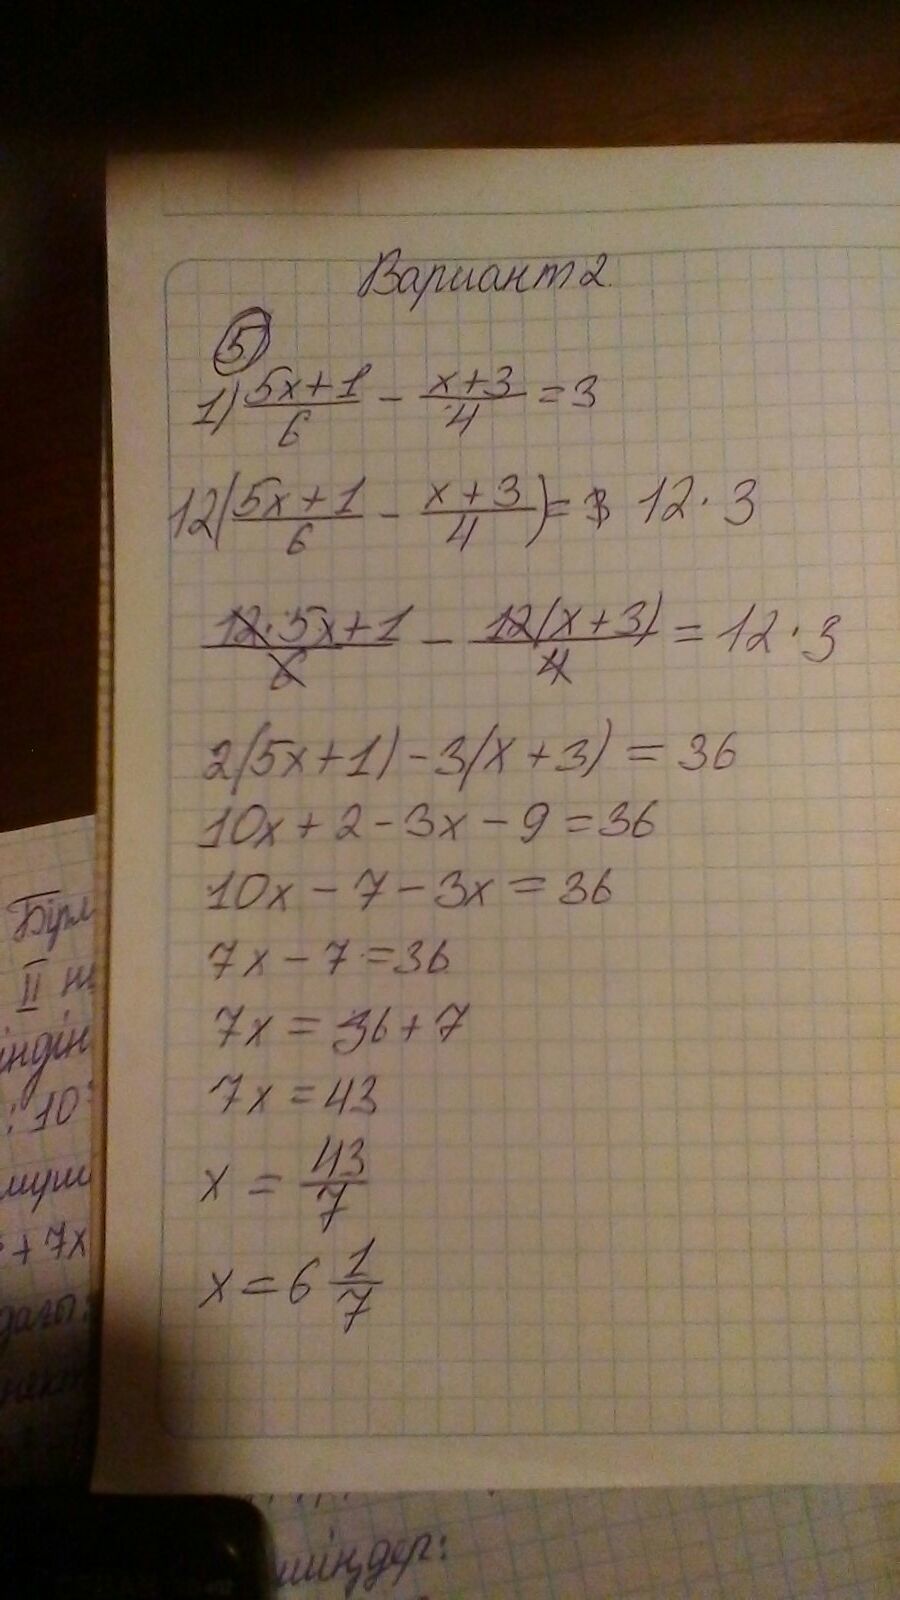 Вариант 2.
5
1) (5x+1)/6 - (x+3)/4 = 3
12((5x+1)/6 - (x+3)/4) = 12·3
(12·5x+1)/6 - (12(x+3))/4 = 12·3
2(5x+1)-3(x+3) = 36
10x+2-3x-9=36
10x-7-3x=36
7x-7=36
7x=36+7
7x=43
x = 43/7
x = 6 1/7
Бірл
II
індің
:10
+7x
шіңдер: